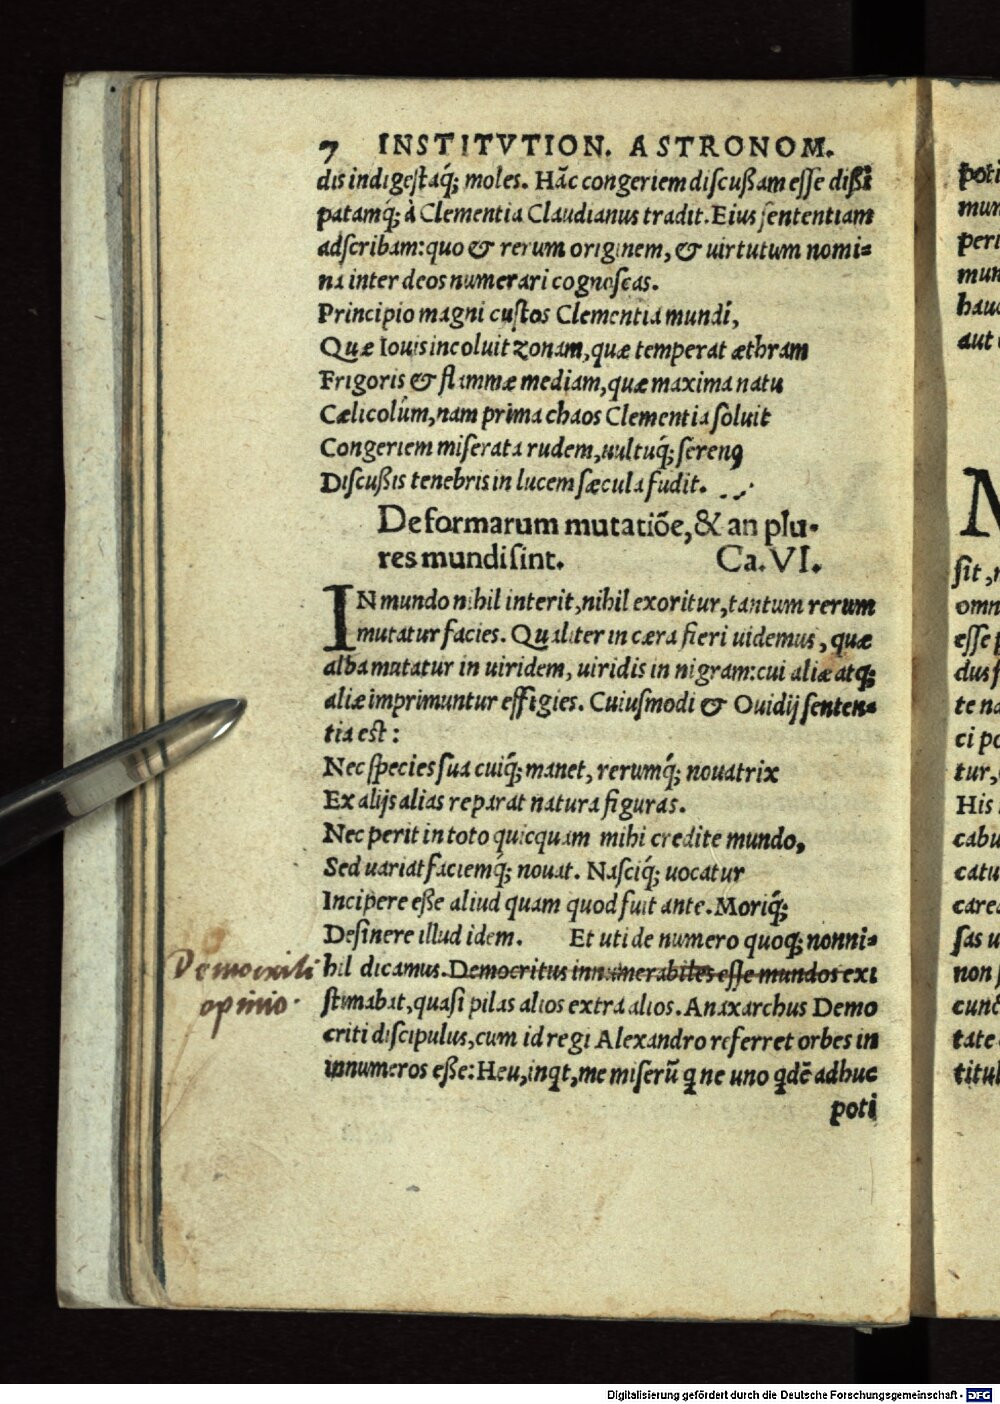 7 INSTITVTION. ASTRONOM.
dis indigestaq́; moles. Hãc congeriem discußam esse dißi
patamq́; à Clementia Claudianus tradit. Eius sententiam
adscribam: quo & rerum originem, & uirtutum nomi=
na inter deos numerari cognoscas.
Principio magni custos Clementia mundi,
Quæ Iouis incoluit zonam, quæ temperat æthram
Frigoris & flammæ mediam, quæ maxima natu
Cælicolûm, nam prima chaos Clementia soluit
Congeriem miserata rudem, uultuq́; sereno
Discußis tenebris in lucem sæcula fudit.
De formarum mutatiõe, & an plu-
res mundi sint. Ca. VI.
IN mundo nihil interit, nihil exoritur, tantum rerum
mutatur facies. Qualiter in cæra fieri uidemus, quæ
alba mutatur in uiridem, uiridis in nigram: cui aliæ atq;
aliæ imprimuntur effigies. Cuiusmodi & Ouidij senten=
tia est:
Nec species sua cuiq́; manet, rerumq́; nouatrix
Ex alijs alias reparat natura figuras.
Nec perit in toto quicquam mihi credite mundo,
Sed uariat faciemq́; nouat. Nasciq́; uocatur
Incipere eße aliud quam quod fuit ante. Moriq́;
Desinere illud idem. Et uti de numero quoq; nonni=
hil dicamus. Democritus innumerabiles esse mundos exi
stimabat, quasi pilas alios extra alios. Anaxarchus Demo
criti discipulus, cum id regi Alexandro referret orbes in
innumeros eße: Heu, inqt, me miserũ q ne uno qdẽ adhuc
poti
Democriti
opinio.
poti
mun
peri
mun
hauc
aut
M
sit,
omn
esse p
dus s
te na
ci po
tur,
His
cabu
catu
care
sas u
non
cunc
tate
titul
Digitalisierung gefördert durch die Deutsche Forschungsgemeinschaft - DFG